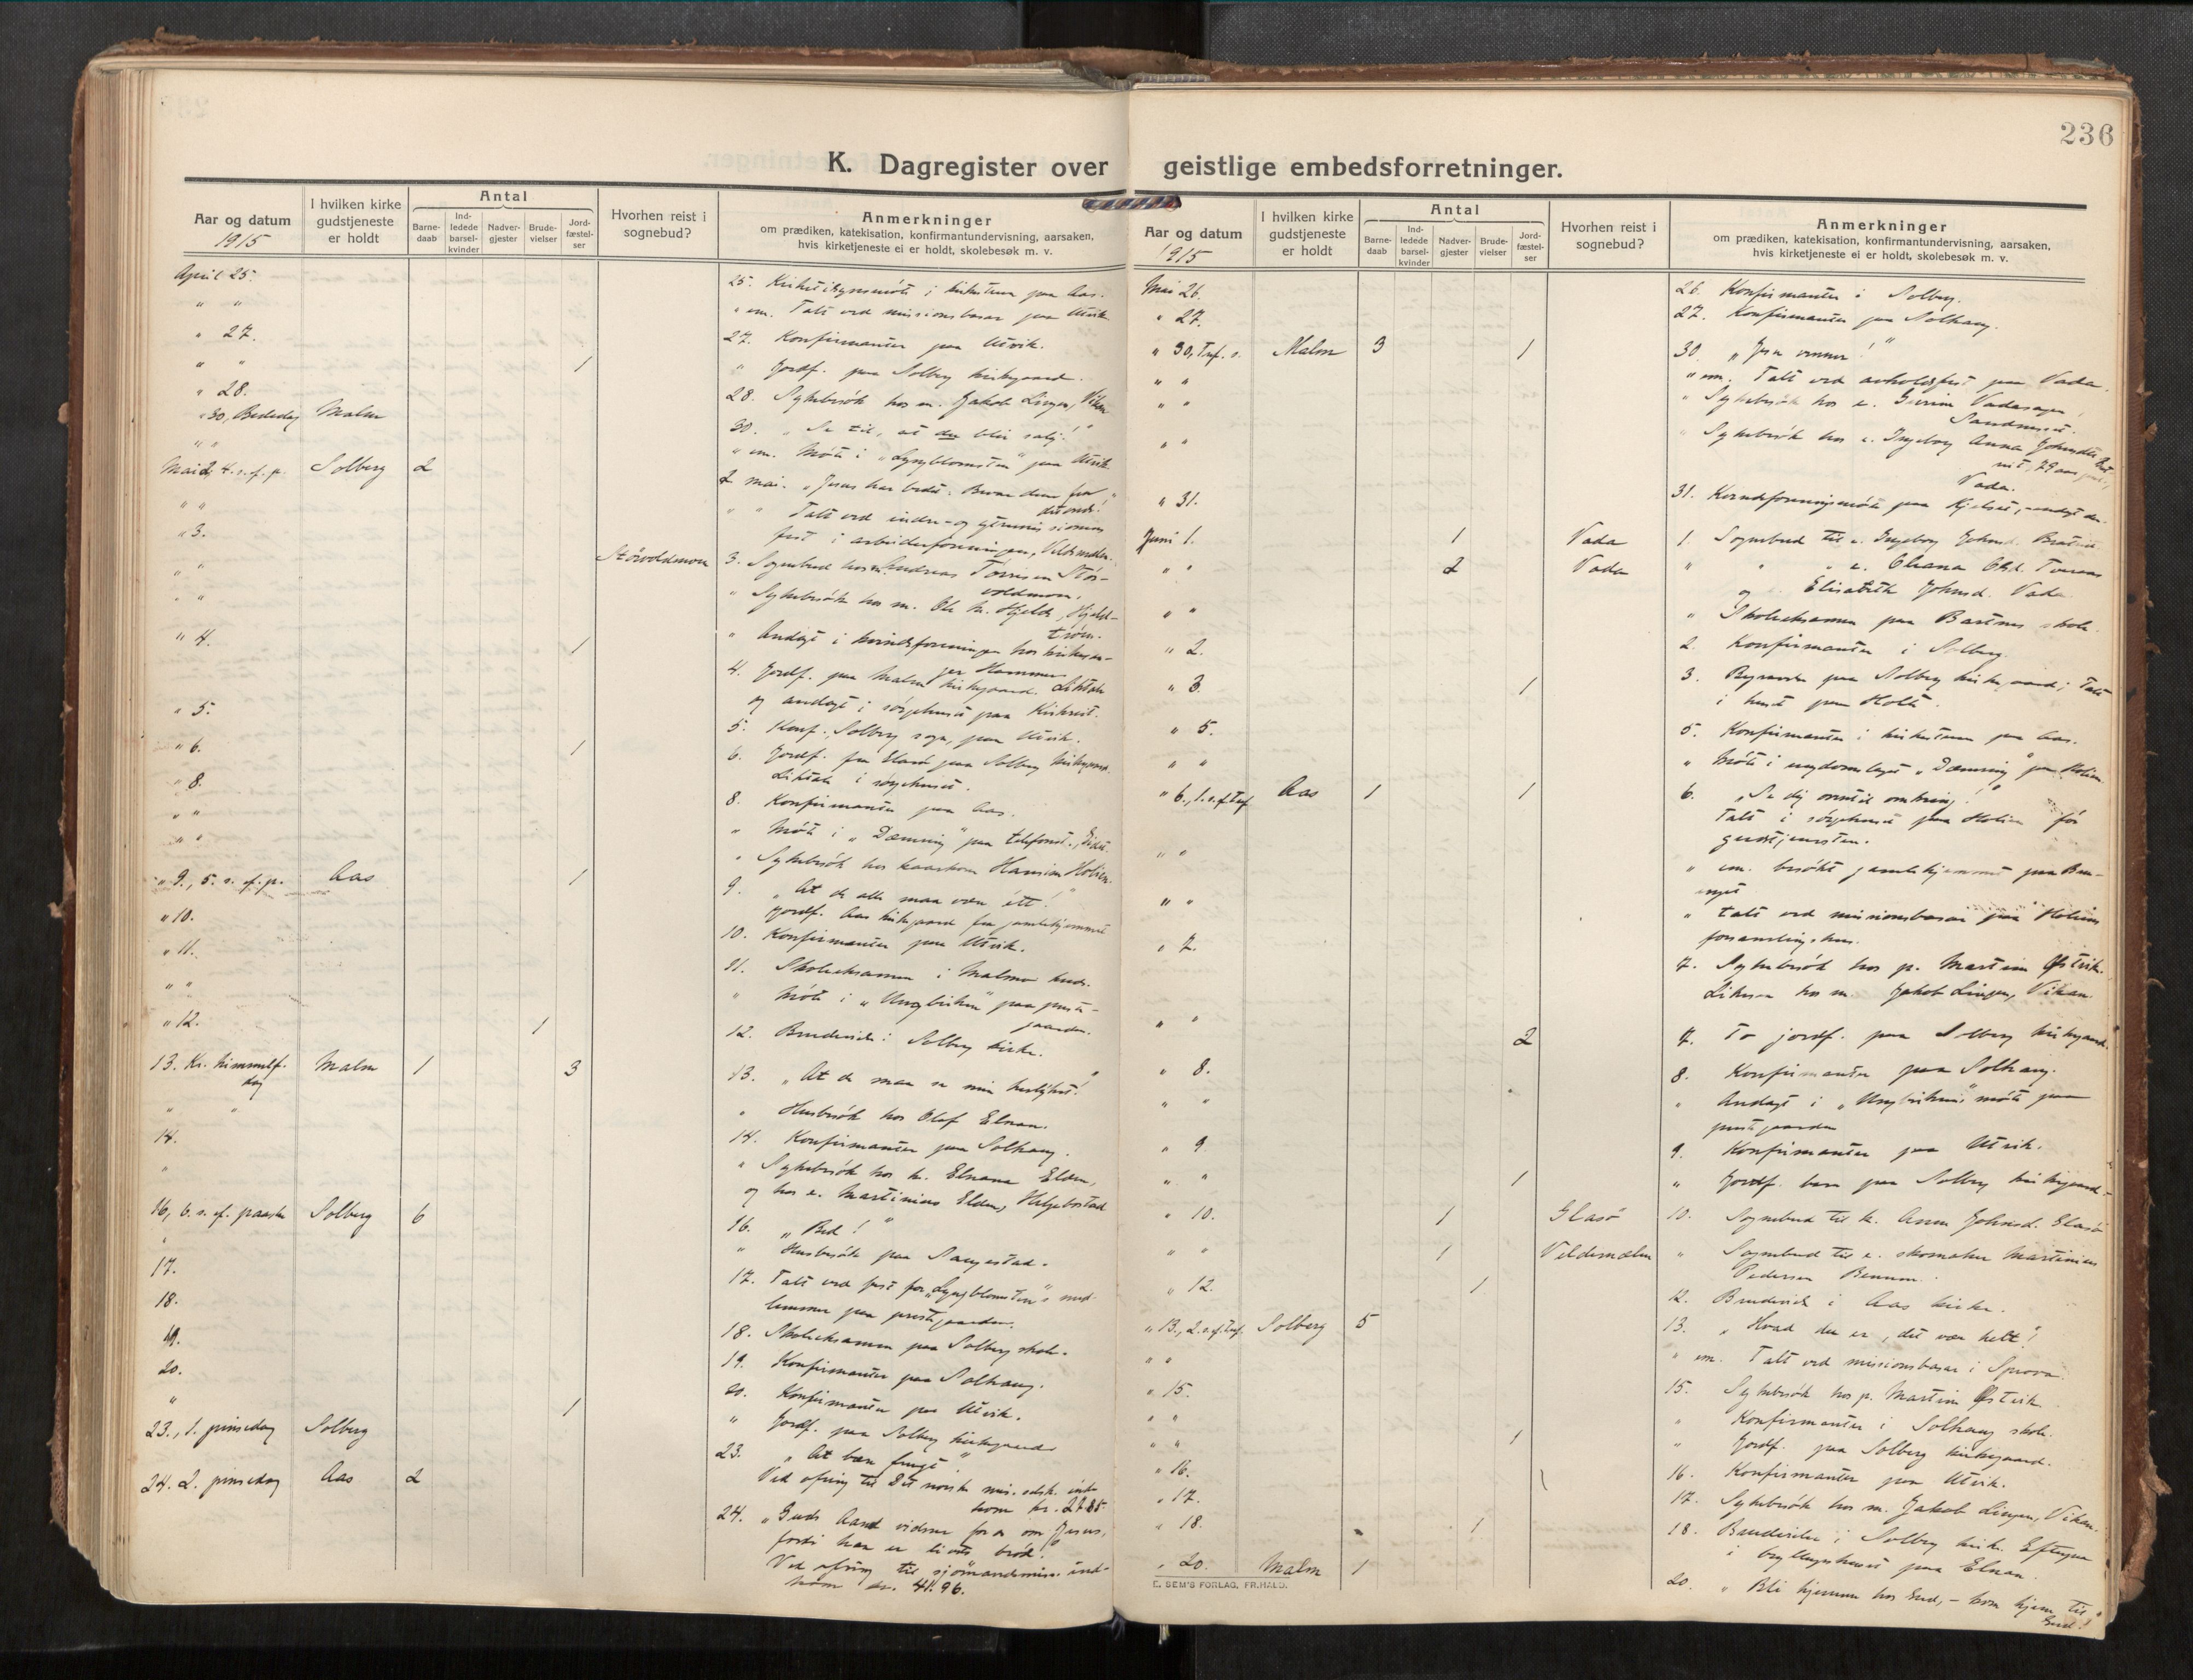 236
K. Dagregister over geistlige embedsforretninger.
Aar og datum
1915
I hvilken kirke gudstjeneste er holdt
Antal
Barnedaab
Indledede barselkvinder
Nadvergjester
Brudevielser
Jordfæstelser
Hvorhen reist i sognebud?
Anmerkninger
om prædiken, katekisation, konfirmantundervisning, aarsaken,
hvis kirketjeneste ei er holdt, skolebesøk m. v.
April 25.
25. Kirketilsynsmöte i kirkestuen paa Aas.
" "
" em. Talt ved missionsbasar paa Utvik
" 27.
27. Konfirmanter paa Utvik.
" " 1
" Jordf. paa Solberg kirkegaard.
" 28.
28. Sykebesök hos m. Jakob Lingen, Vikan
" 30, Bededag Malm
30. "Se til, at du blir salig!"
" "
" em. Möte i "Lyngblomsten" paa Utvik
Mai 2, 4. s. ef. p. Solberg 2
2 mai. "Jesus har bedt: Bevar dem fra det onde!"
" "
" " Talt ved indre- og
fest i arbeiderforeningen, Veldemelen.
" 3. Störvoldmoen
3. Sognebud hos Andreas Törrisen Störvoldmoen.
" "
" Sykebesök hos m. Ole Kr. Hjelde, Hjeldström.
" "
" Andagt i kvindeforeningen hos kirkesanger Hammer
" 4. 1
4. Jordf. paa Malm kirkegaard. Liktale
og andagt i sörgehuset paa Kirkreit.
" 5.
5. Konf., Solberg sogn, paa Utvik.
" 6. 1
6. Jordf. fra Elnan paa Solberg kirkegaard.
Liktale i sörgehuset.
" 8.
8. Konfirmanter paa Aas.
" "
" Möte i "Dæmring" paa telefonst.,
" "
" Sykebesök hos Hansine Holien.
" 9., 5. s. ef. p. Aas 1
9. "At de alle maa være ett!"
Jordf. Aas kirkegaard fra gamlehjemmet
" 10.
10. Konfirmanter paa Utvik.
" 11.
11. Skoleeksamen i Malmo kreds.
" "
" Möte i "Ungbirken" paa prestegaarden.
" 12. 1
12. Brudevielse i Solberg kirke.
13. Kr. himmelf. dag Malm 1 3
13. "At de maa se min herlighet!"
" "
" Husbesök hos Olaf Elnan.
14.
14. Konfirmanter paa Solhaug.
"
" Sykebesök hos k. Elnana Elden,
og hos e. Martinius Elden, Heljebostad
16, 6. s. ef. paaske Solberg 6
16. "Bed!"
"
" Husbesök paa Saugestad.
17.
17. Talt ved fest for "Lyngblomsten"s medlemmer paa prestgaarden.
18.
18. Skoleeksamen paa Solberg skole.
19.
19. Konfirmanter paa Solhaug.
20.
20. Konfirmanter paa Utvik.
" 1
" Jordf. paa Solberg kirkegaard
23., 1. pinsedag Solberg
23. "At bære frugt"
Ved ofring til Det norske mis. selsk. indkom kr.
24. 2. pinsedag Aas 2
24. "Guds Aand vidner for os om Jesus,
fordi han er livets bröd!"
Ved ofring til sjömandsmis. indkom kr. 41.96.
Aar og datum
1915
I hvilken kirke gudstjeneste er holdt
Antal
Barnedaab
Indledede barselkvinder
Nadvergjester
Brudevielser
Jordfæstelser
Hvorhen reist i sognebud?
Anmerkninger
om prædiken, katekisation, konfirmantundervisning, aarsaken,
hvis kirketjeneste ei er holdt, skolebesøk m. v.
Mai 26.
26. Konfirmanter i Solberg.
" 27.
27. Konfirmanter paa Solhaug.
" 30, Tref. s. Malm 3 1
30. "Jesu venner!"
" "
" em. Talt ved avholdsfest paa Vada.
" "
" Sykebesök hos e. Vadasagen, Sandneset.
" "
" Sykebesök hos e. Ingeborg Anna Johnsdtr.
79 aar Vada.
" 31.
31. Kvindeforeningsmöte paa Kjelset,
Juni 1. 1 Vada
1. Sognebud til e. Ingeborg Johnsd. Bratreit
" " 2 Vada
" " " e. Eliana Olsd. Tveraas
og Elisabeth Johnsd. Vada.
" "
" Skoleeksamen paa Bartnes skole.
" 2.
2. Konfirmanter i Solberg.
" 3. 1
3. Begravelse paa Solberg kirkegaard; Talt
i huset paa Holte.
" 5.
5. Konfirmanter i kirkestuen paa Aas.
" "
" Möte i ungdomslaget "Dæmring" paa Holien.
" 6., 1. s. ef. Tref. Aas 1 1
6. "Se dig omkring!"
Talt i sörgehuset paa Holien för
gudstjenesten.
" "
" em. besökt gamlehjemmet paa
" "
" Talt ved missionsbasar paa Holiens
forsamlingshus.
" 7.
7. Sykebesök hos p. Martin Östvik.
Likesaa hos m. Jakob Lingen, Vikan.
" " 2
7. To jordf. paa Solberg kirkegaard.
" 8.
8. Konfirmanter paa Solhaug.
" "
" Andagt i "Ungbirken"s möte paa
prestgaarden
" 9.
9. Konfirmanter paa Utvik.
" " 1
" Jordf. barn paa Solberg kirkegaard.
" 10. 1 Elasö
10. Sognebud til k. Anne Johnsd. Elasö
" " 1 Veldemelen
" Sognebud til e. skomaker Martinius
Pedersen Bennum.
" 12. 1
12. Brudevielse i Aas kirke.
" 13., 2. s. ef. Tref. Solberg 5
13. "Hvad du er, det vær helt!"
" "
" em. Talt ved missionsbasar i Sprova.
" 15.
15. Sykebesök hos p. Martin Östvik
" "
" Konfirmanter i Solhaug skole.
" " 1
" Jordf. paa Solberg kirkegaard.
" 16.
16. Konfirmanter paa Utvik.
" 17.
17. Sykebesök hos m. Jakob Lingen, Vikan.
" 18. 1
18. Brudevielse i Solberg kirke. Efterpaa
i bryllupshuset paa Elnan.
" 20. Malm 1
20. "Bli hjemme hos Gud, - kom hjem til Gud!"
E. SEM'S FORLAG, FR.HALD.